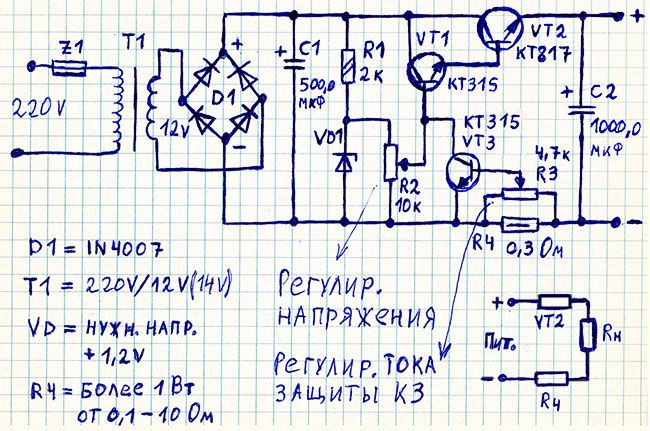 Z1
T1
220V
12V
D1
+
-
+
C1
500,0
МКФ
R1
2К
VD1
R2
10К
VT1
КТ315
VT2
КТ817
КТ315
VT3
4,7К
R3
R4
0,3 Ом
+
C2
1000,0
МКФ
+
-
D1 = IN4007
T1 = 220V/12V(14V)
VD = НУЖН. НАПР.
+1,2V
R4 = БОЛЕЕ 1 Вт
ОТ 0,1-10 Ом
РЕГУЛИР.
НАПРЯЖЕНИЯ
РЕГУЛИР. ТОКА
ЗАЩИТЫ КЗ
+
Пит.
-
VT2
RH
R4